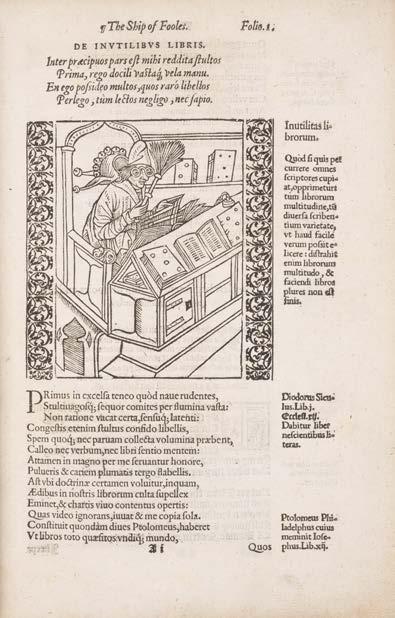 ¶ The Ship of Fooles. Folio.1.
DE INVTILIBVS LIBRIS.
Inter præcipuos pars est mihi reddita stultos
Prima, rego docili vastaq́; vela manu.
En ego possideo multos, quos rarò libellos
Perlego, tùm lectos negligo, nec sapio.
Inutilitas li-
brorum.
Quòd si quis per
currere omnes
scriptores cupi-
at, opprimetur
tum librorum
multitudine, tū
diuersa scriben-
tium varietate,
vt haud facilè
verum possit e-
licere: distrahit
enim librorum
multitudo, &
faciendi libros
plures non est
finis.
PRimus in excelsa teneo quòd naue rudentes,
Stultiuagosq́; sequor comites per flumina vasta:
Non ratione vacat certa, sensuq́; latenti:
Congestis etenim stultus confido libellis,
Spem quoq́; nec paruam collecta volumina præbent,
Calleo nec verbum, nec libri sentio mentem:
Attamen in magno per me seruantur honore,
Pulueris & cariem plumatis tergo flabellis.
Ast vbi doctrinæ certamen voluitur, inquam,
Ædibus in nostris librorum culta supellex
Eminet, & chartis viuo contentus opertis:
Quas video ignorans, iuuat & me copia sola.
Constituit quondàm diues Ptolomeus, haberet
Vt libros toto quæsitos vndiq́; mundo,
Diodorus Sicu-
lus. Lib.j.
Eccles. xij.
Dabitur liber
nescientibus li-
teras.
Ptolomeus Phi-
ladelphus cuius
meminit Iose-
phus. Lib. xij.
A i Quos